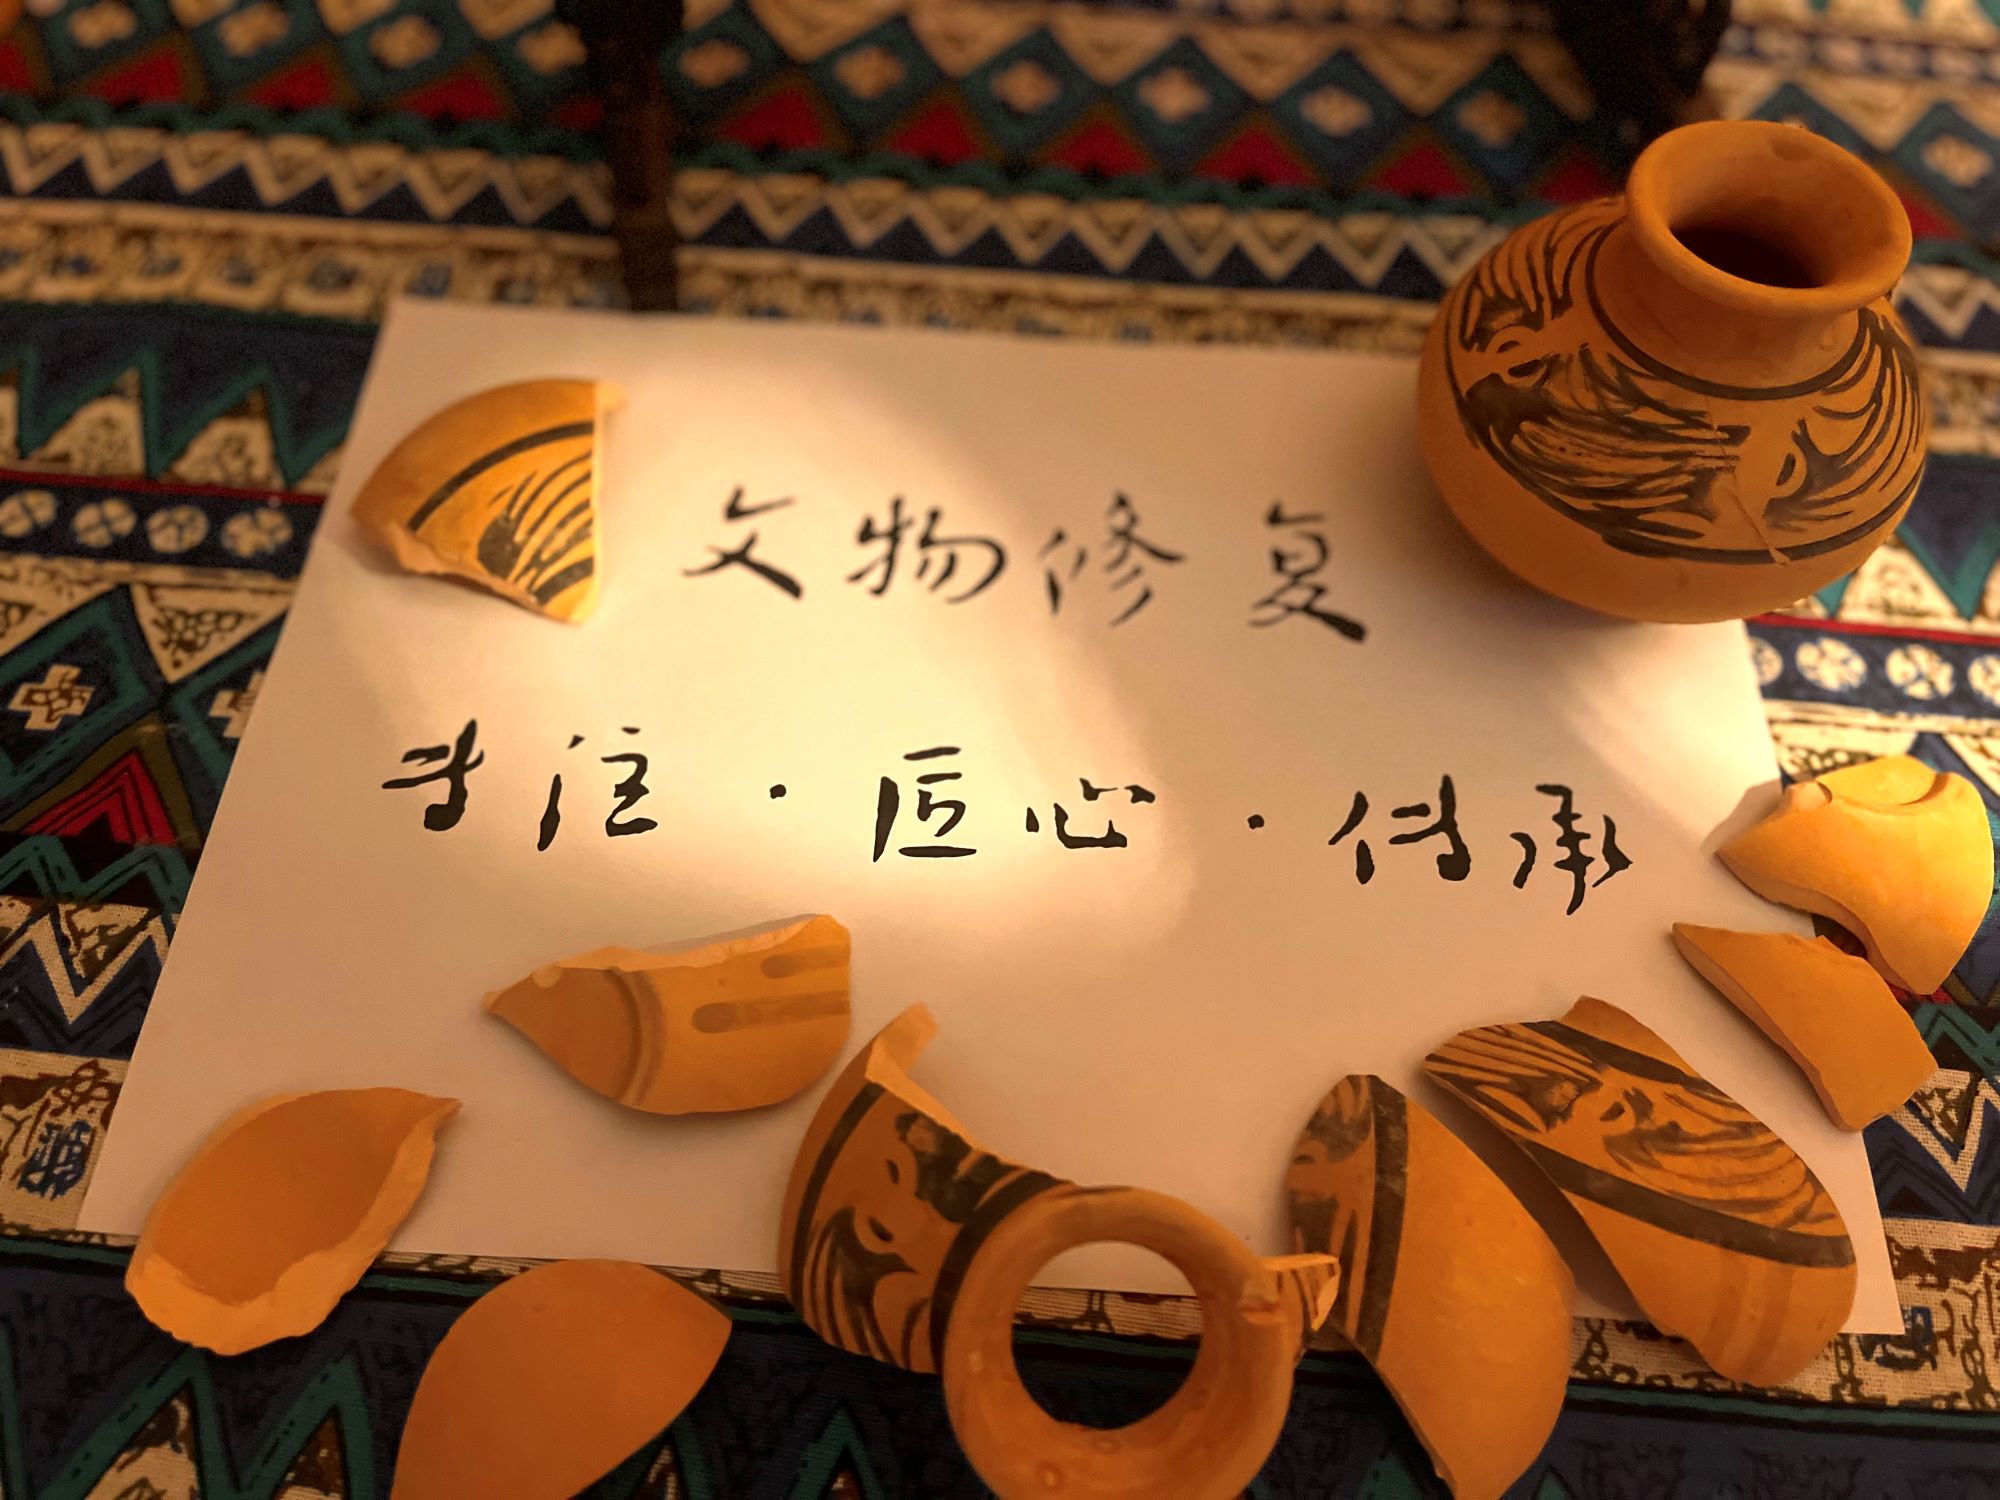 文物修复
专注·匠心·传承